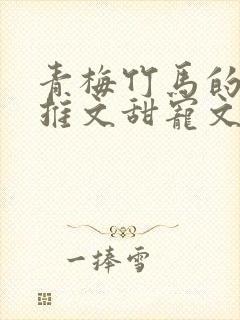 青梅竹马的
推文甜宠文
一捧雪